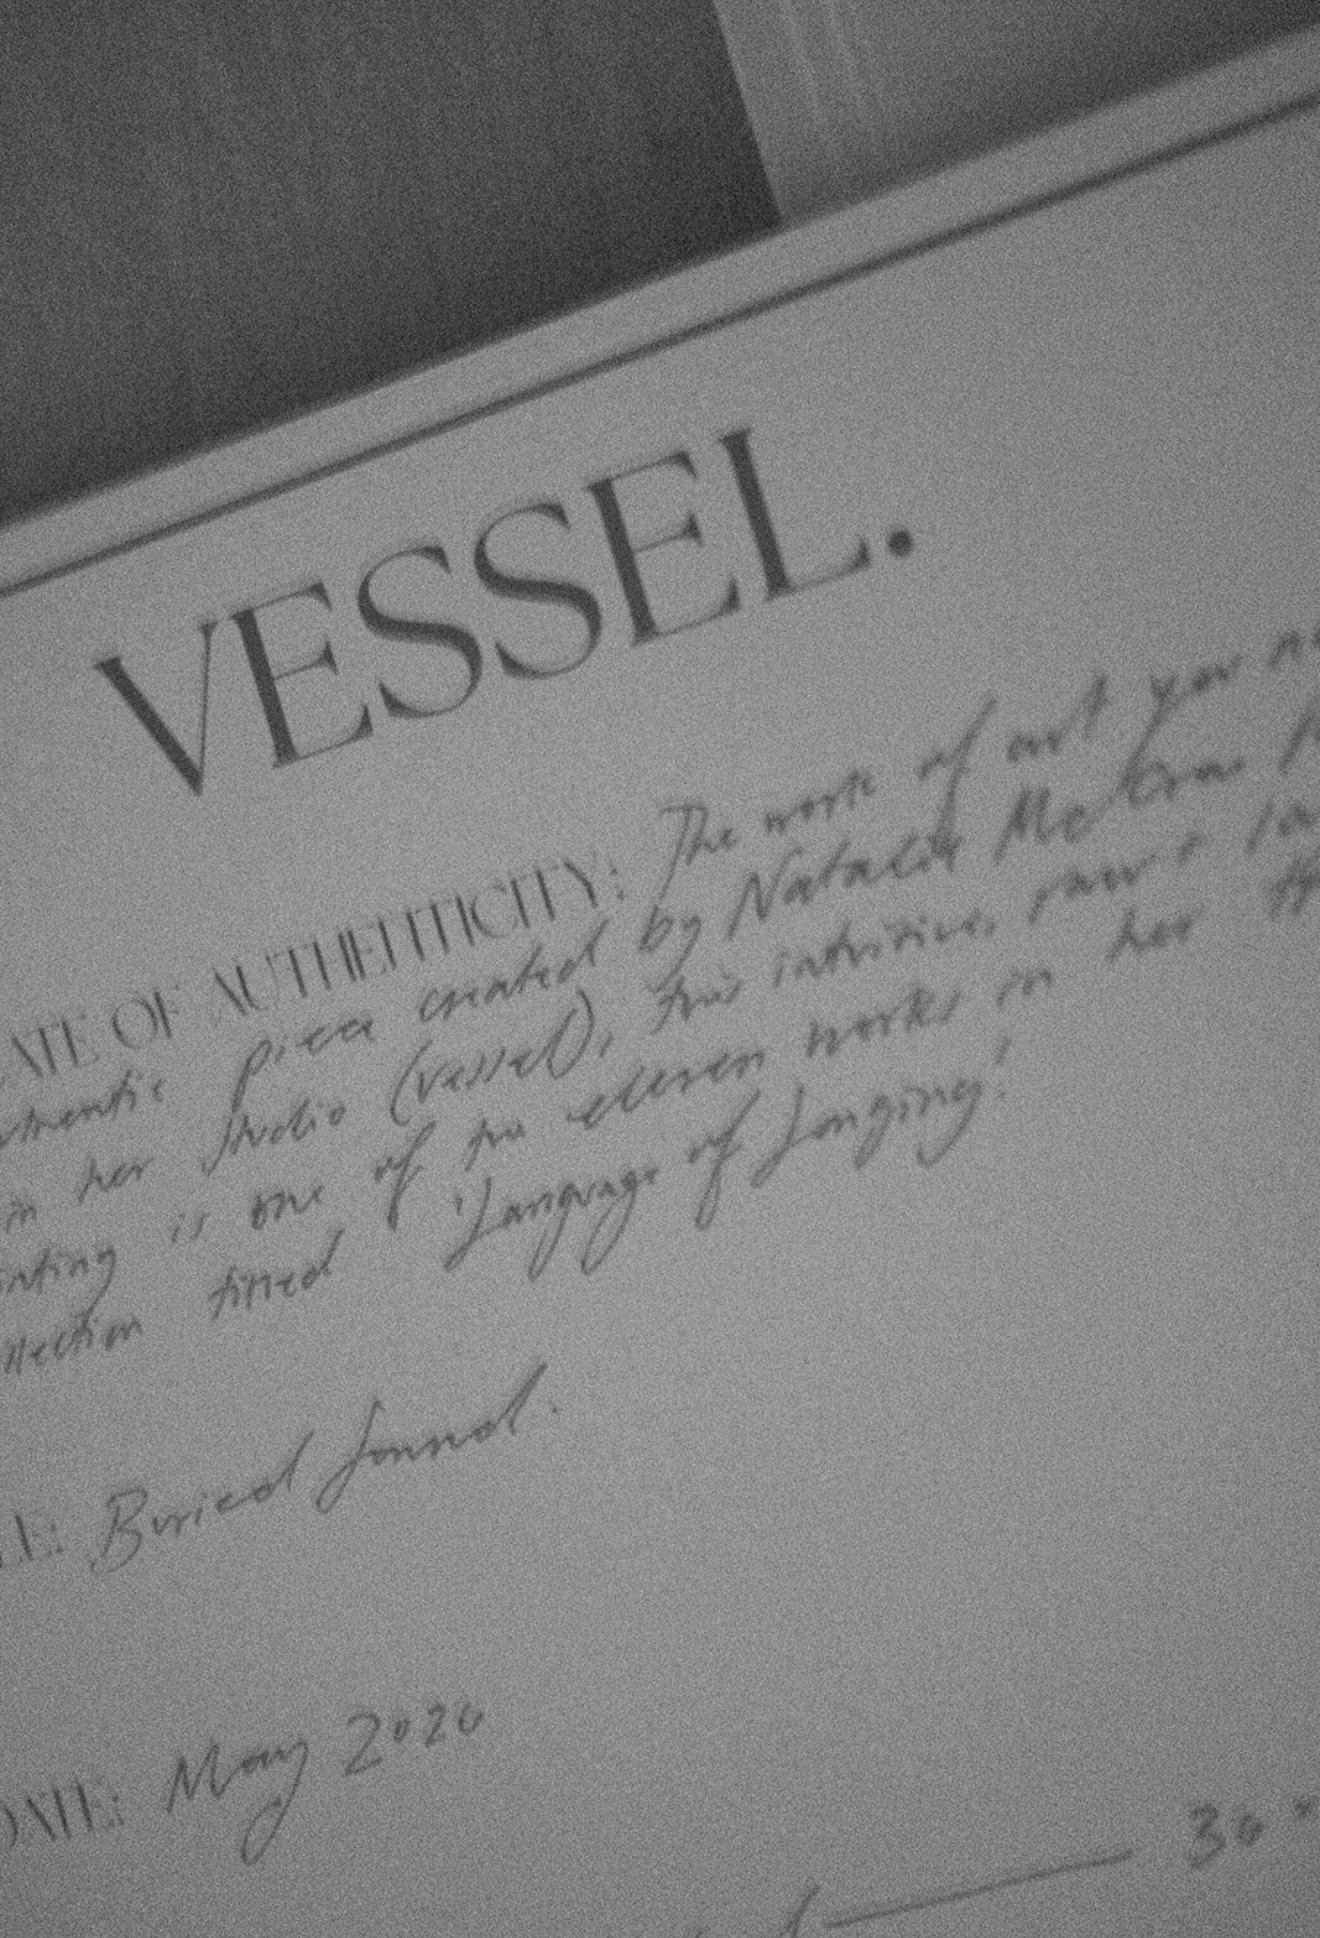 VESSEL.
ATE OF AUTHENTICITY: The work of art you
piece created by Natalie
in her studio (vessel), this intuitive, raw +
is one of the eleven works in her
titled 'Language of Longing'
LE: Buried Sound.
DATE: May 2026
30"